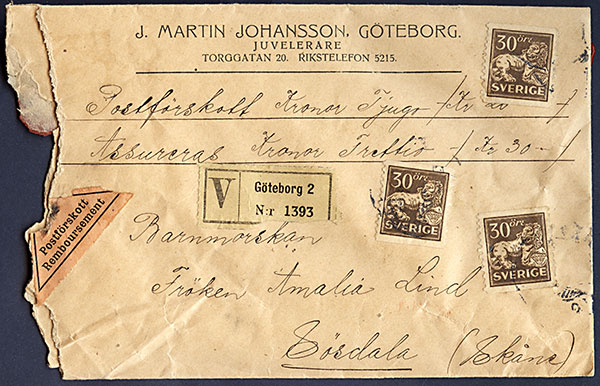 J. MARTIN JOHANSSON, GÖTEBORG.
JUVELERARE
TORGGATAN 20. RIKSTELEFON 5215.
30 ÖRE
SVERIGE
Postförskott Kronor Tjugo - / Kr 20 - /
Assureras Kronor Trettio - / Kr 30 - /
V
Göteborg 2
N:r 1393
30 ÖRE
SVERIGE
30 ÖRE
SVERIGE
Postförskott
Remboursement
Barnmorskan
Fröken Amalia Lind
Sösdala (Skåne)